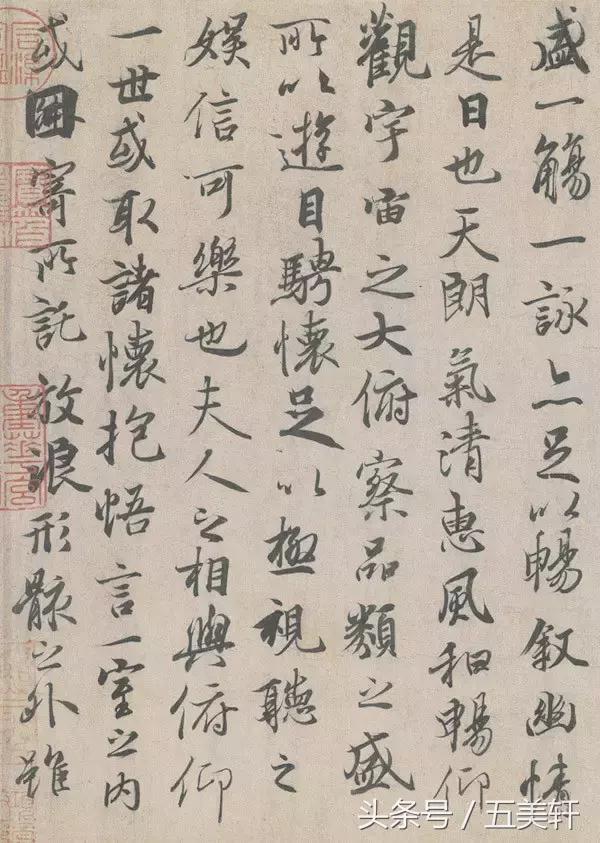 盛一觴一詠亦足以暢叙幽情
是日也天朗氣清惠風和暢仰
觀宇宙之大俯察品類之盛
所以遊目騁懷足以極視聽之
娛信可樂也夫人之相與俯仰
一世或取諸懷抱悟言一室之内
或因寄所託放浪形骸之外雖
头条号 / 五美轩